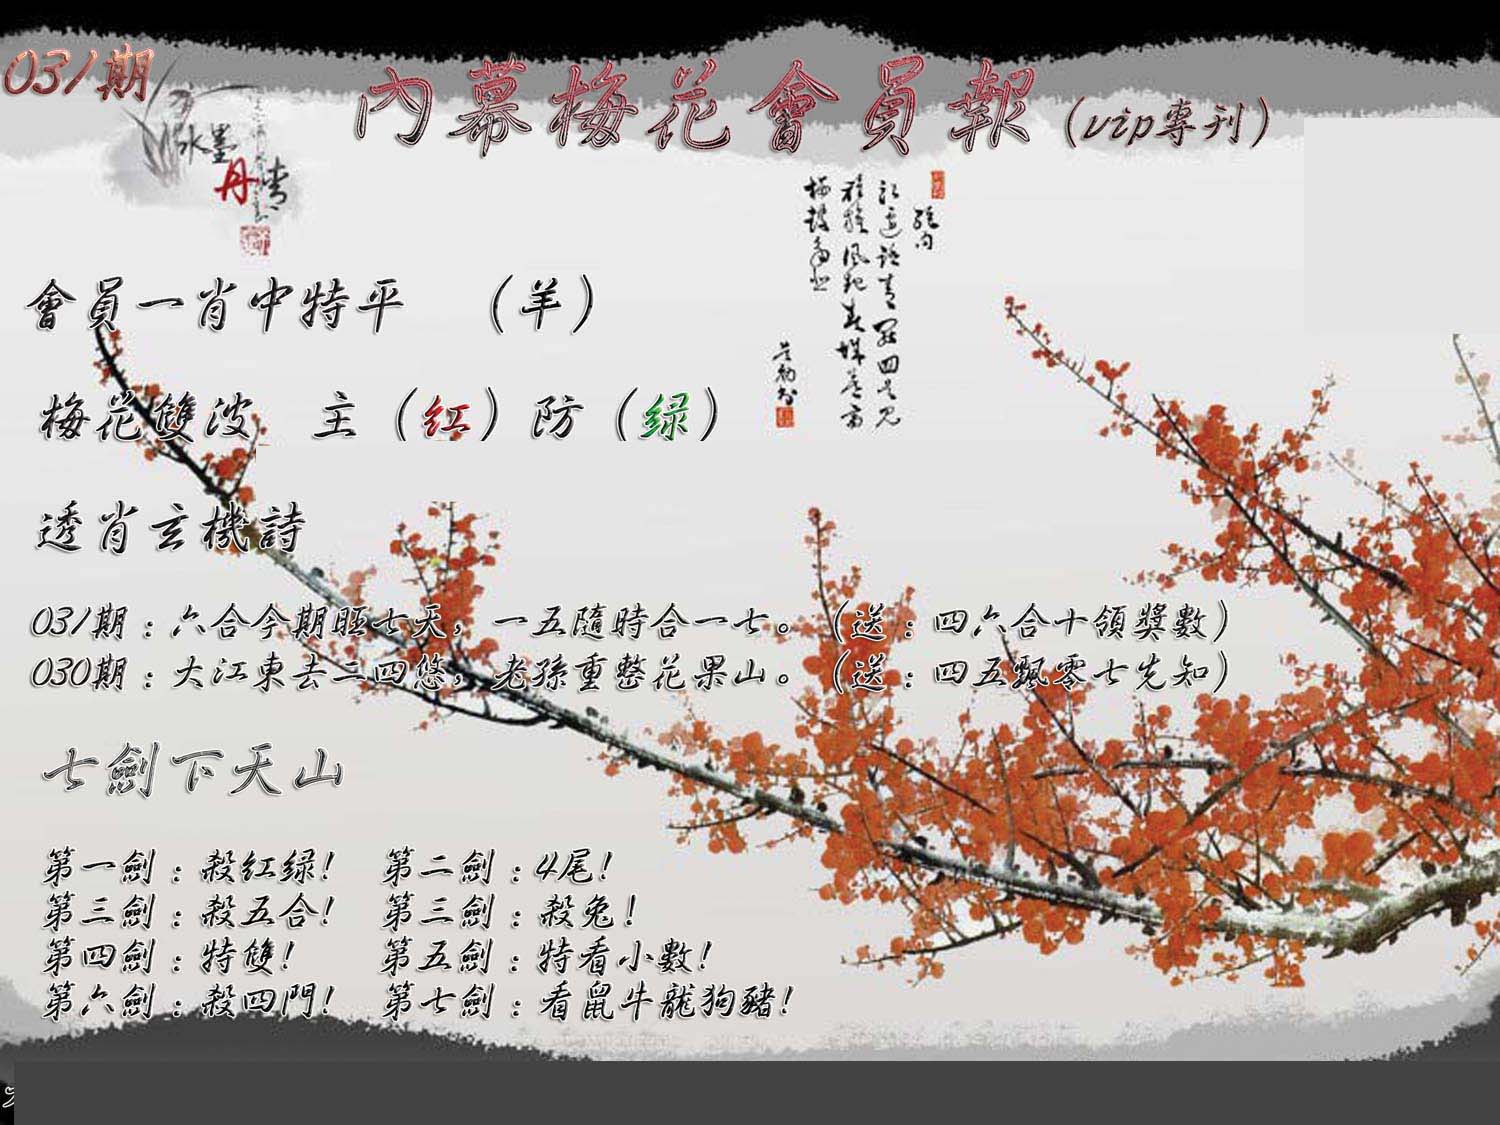 031期
內幕梅花會員報（vip專刊）
水墨
丹青
會員一肖中特平　（羊）
梅花雙波　主（红）防（绿）
透肖玄機詩
031期：六合今期旺七天，一五隨時合一七。（送：四六合十領獎數）
030期：大江東去二四悠，老孫重整花果山。（送：四五飄零七先知）
七劍下天山
第一劍：殺紅緑!　第二劍：4尾!
第三劍：殺五合!　第三劍：殺兔!
第四劍：特雙!　第五劍：特看小數!
第六劍：殺四門!　第七劍：看鼠牛龍狗豬!